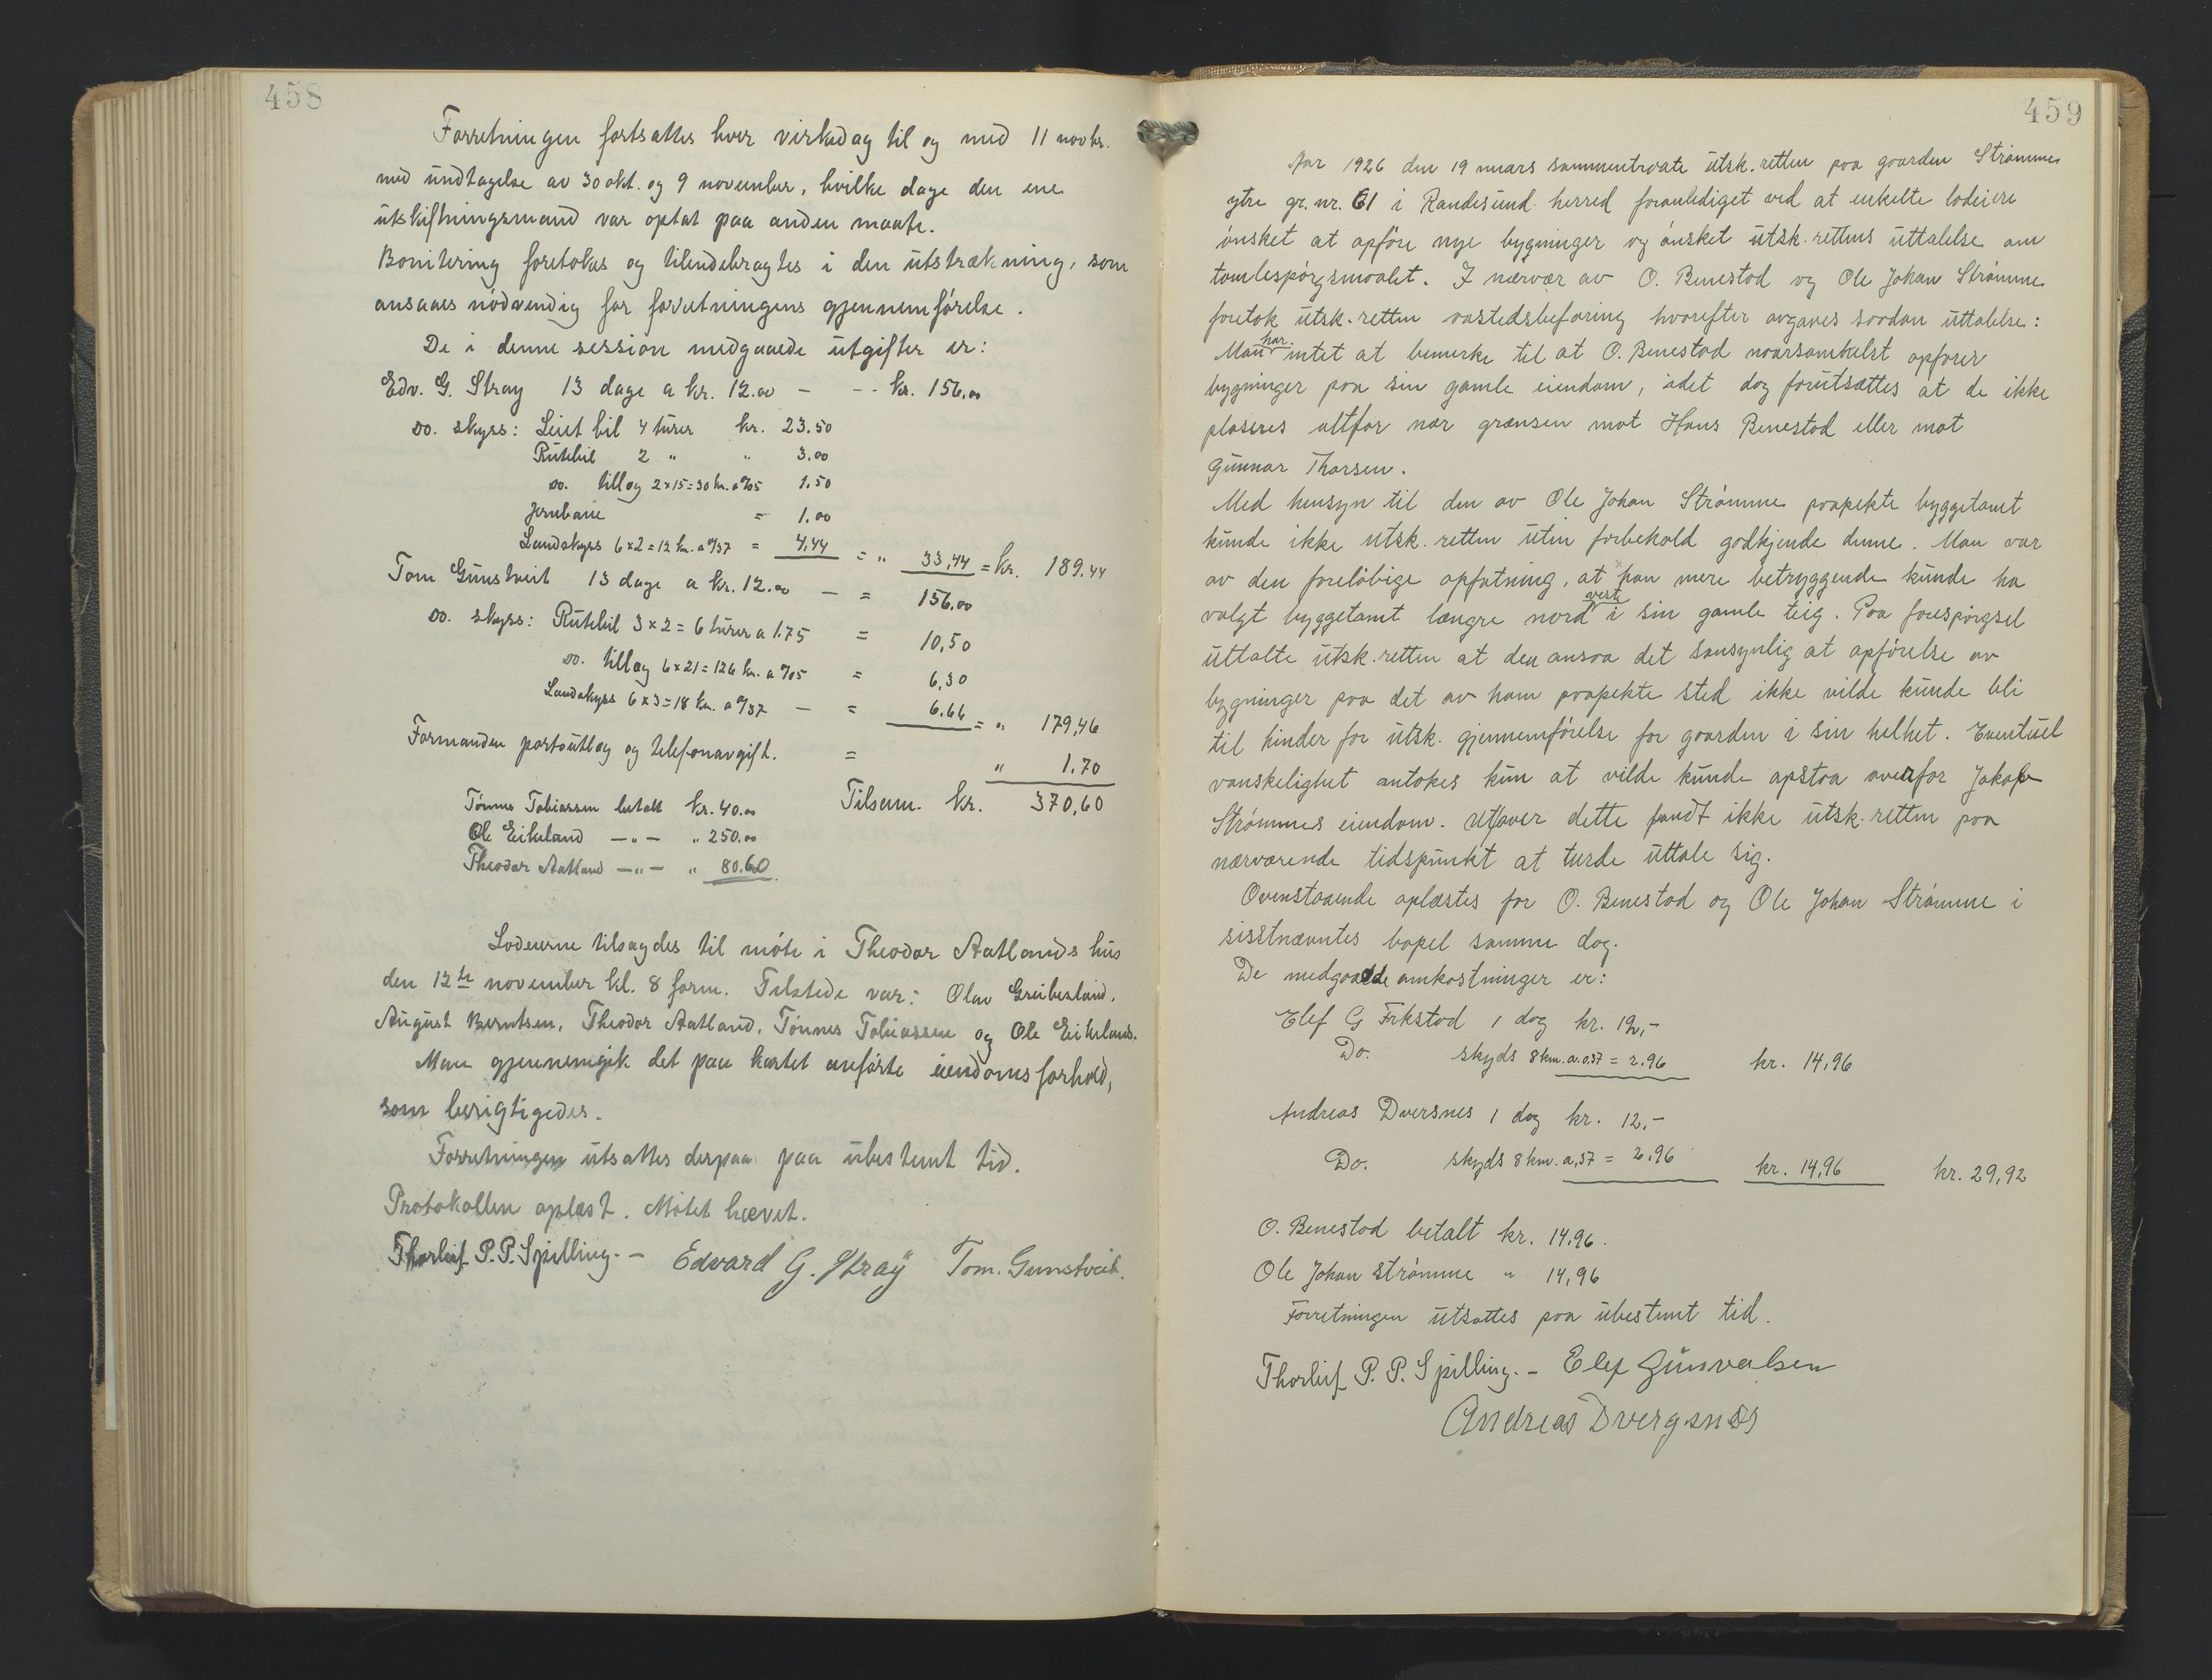 458
Forretningen fortsattes hver virkedag til og med 11 novbr.
med undtagelse av 30 okt. og 9 november, hvilke dage den ene
utskiftningsmand var optat paa anden maate.
Bonitering foretokes og tilendebragtes i den utstrækning, som
ansaaes nödvendig for forretningens gjennemförelse.
De i denne session medgaaede utgifter er:
Edv. G. Stray 13 dage a kr. 12.00 — -- kr. 156,00
Do. skyss: Leiet bil 4 turer kr. 23.50
Rutebil 2 " " 3.00
Do. tillæg 2x15=30 km. a 0/05 1.50
Jernbane = 1.00
Landskyss 6x2=12 km. a 0/37 = 4,44 = " 33,44 = kr. 189.44
Tom Gunstveit 13 dage a kr. 12.00 — = 156,00
Do. skyss: Rutebil 3x2=6 turer a 1.75 = 10,50
Do. tillæg 6x21=126 km. a 0/05 = 6,30
Landskyss 6x3=18 km. a 0/37 — = 6.66 = " 179,46
Formanden portoutlæg og telefonavgift. = " 1.70
Tilsam. kr. 370,60
Tönnes Tobiassen betalt kr. 40.00
Ole Eikeland —"— " 250.00
Theodor Aatland —"— " 80.60
Lodeierne tilsagdes til möte i Theodor Aatlands hus
den 12te november kl. 8 form. Tilstede var: Olav Greibesland,
August Berntsen, Theodor Aatland, Tönnes Tobiassen og Ole Eikeland.
Man gjennemgik det paa kartet anförte eiendomsforhold,
som berigtigedes.
Forretningen utsattes derpaa paa ubestemt tid.
Protokollen oplæst. Mötet hævet.
Thorleif P.P. Spilling. — Edvard G. Stray Tom. Gunstveit.
459
Aar 1926 den 19 mars sammentraate utsk. retten paa gaarden Strömme
ytre gr. nr. 61 i Randesund herred foranlediget ved at enkelte lodeiere
önsket at opföre nye bygninger og önsket utsk. rettens uttalelse om
tomtespörgsmaalet. I nærvær av O. Benestad og Ole Johan Strömme
foretok utsk. retten aastedsbefaring hvorefter avgaves saadan uttalelse:
Man har intet at bemerke til at O. Benestad naarsomhelst opförer
bygninger paa sin gamle eiendom, idet dog forutsættes at de ikke
plaseres altfor nær grænsen mot Hans Benestad eller mot
Gunnar Thorsen.
Med hensyn til den av Ole Johan Strömme paapekte byggetomt
kunde ikke utsk. retten uten forbehold godkjende denne. Man var
av den forelöbige opfatning, at han mere betryggende kunde ha
valgt byggetomt længre nord vest i sin gamle teig. Paa forespörgsel
uttalte utsk. retten at den ansaa det sansynlig at opförelse av
bygninger paa det av ham paapekte sted ikke vilde kunde bli
til hinder for utsk. gjennemförelse for gaarden i sin helhet. Eventuel
vanskelighet antokes kun at vilde kunde opstaa ovenfor Jakob
Strömmes eiendom. Utover dette fandt ikke utsk. retten paa
nærværende tidspunkt at turde uttale sig.
Ovenstaaende oplæstes for O. Benestad og Ole Johan Strömme i
sisstnævntes bopel samme dag.
De medgaaede omkostninger er:
Elef G 1 dag kr. 12,-
Do. skyds 8 km. a. 0.37 = 2.96 kr. 14,96
Andreas Dversnes 1 dag kr. 12,-
Do. skyds 8 km. a, 37 = 2.96 kr. 14,96 kr. 29,92
O. Benestad betalt kr. 14,96.
Ole Johan Strömme " 14,96
Forretningen utsattes paa ubestemt tid.
Thorleif P. P. Spilling. — Elef Gunvalsen
Andreas Dvergsnes